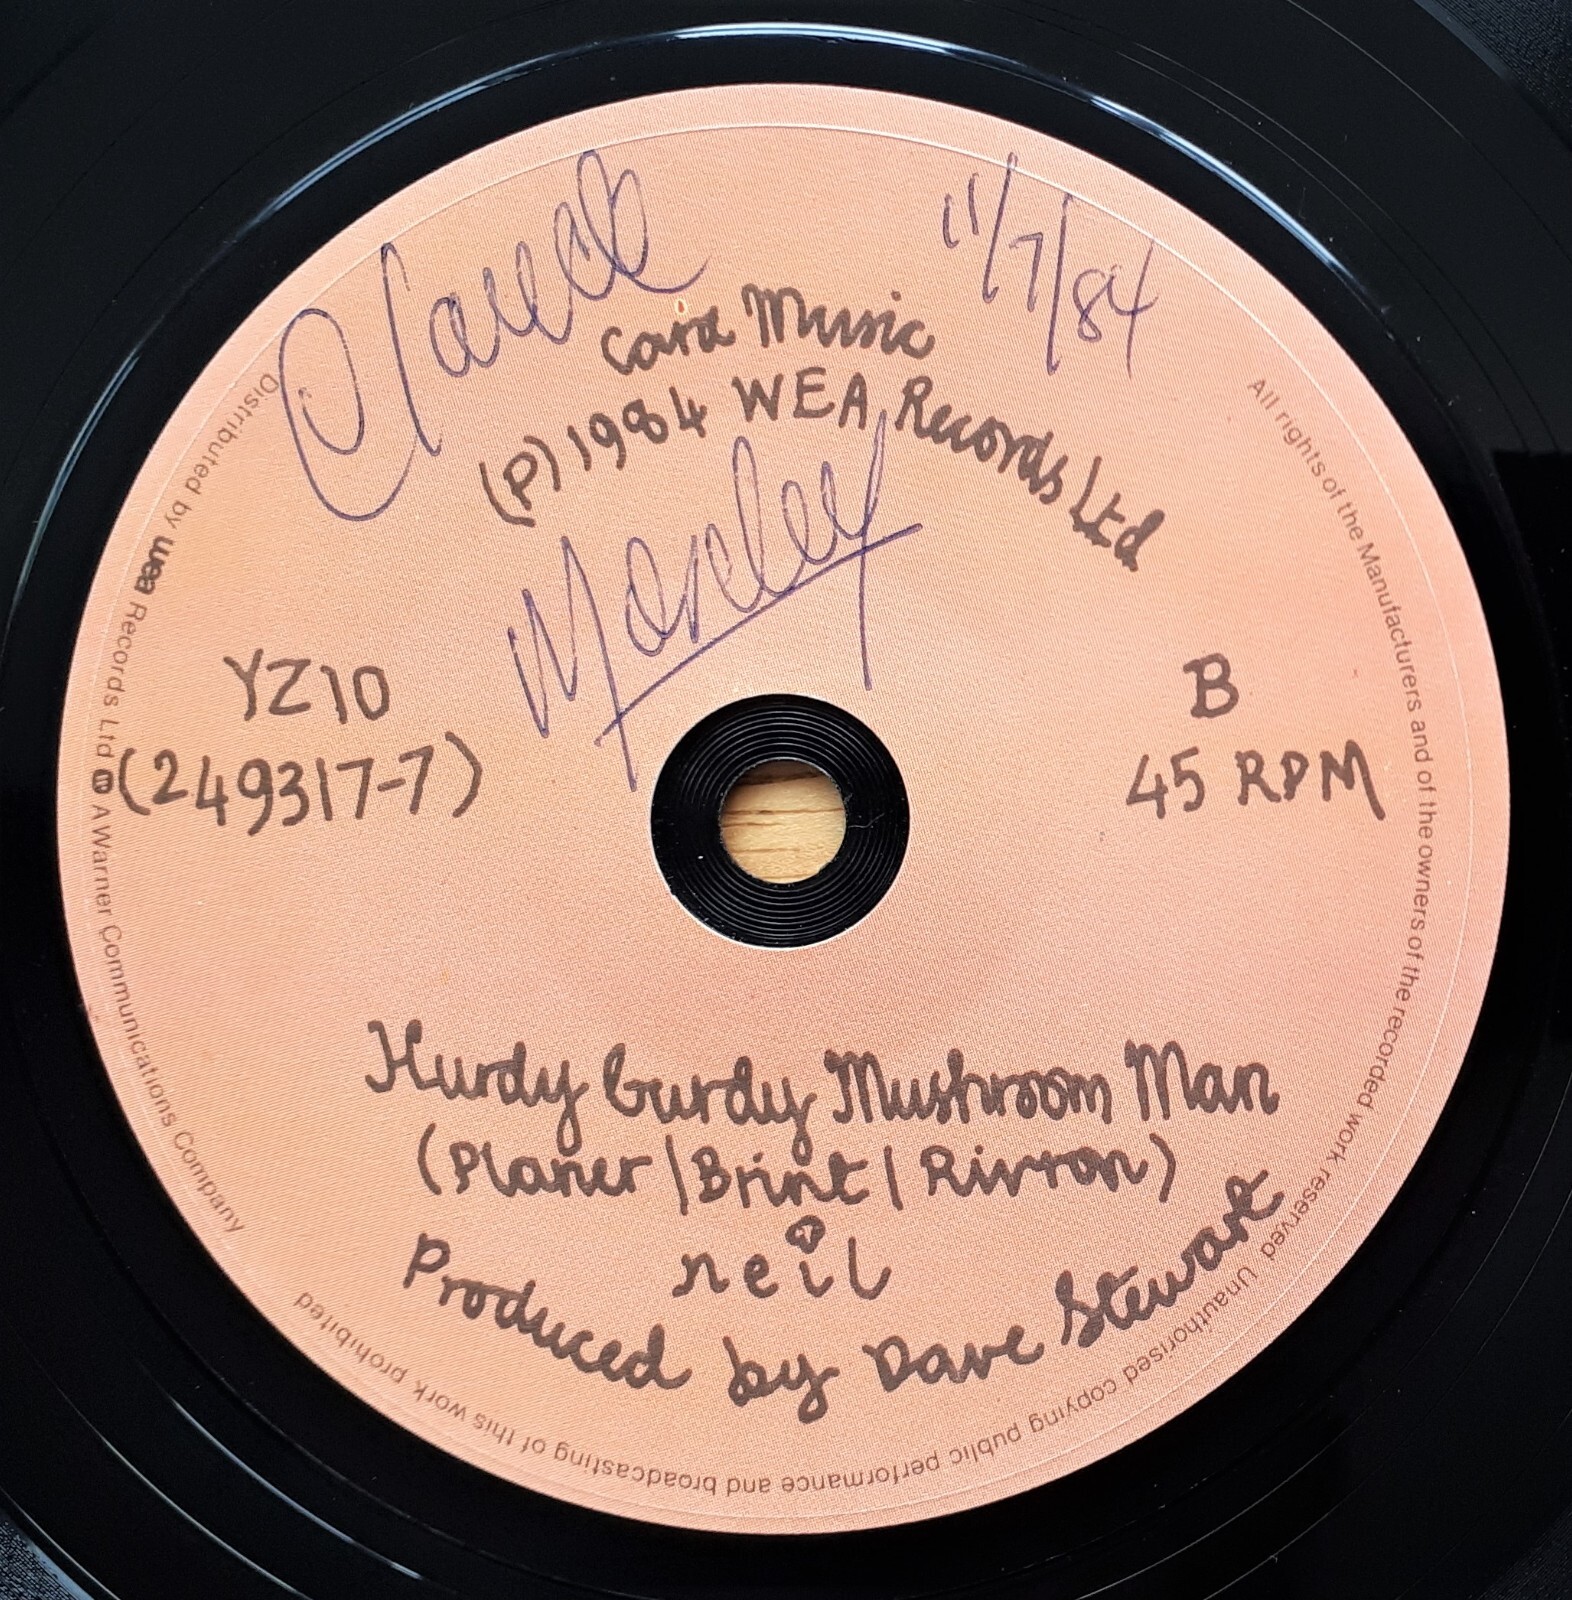 11/7/84
Cara Music
(P) 1984 WEA Records Ltd
Morley
YZ10
(249317-7)
B
45 RPM
Hurdy Gurdy Mushroom Man
(Planer/Brint/Rivron)
neil
Produced by Dave Stewart
Distributed by wea Records Ltd A Warner Communications Company
All rights of the Manufacturers and of the owners of the recorded work reserved Unauthorised copying public performance and broadcasting of this work prohibited